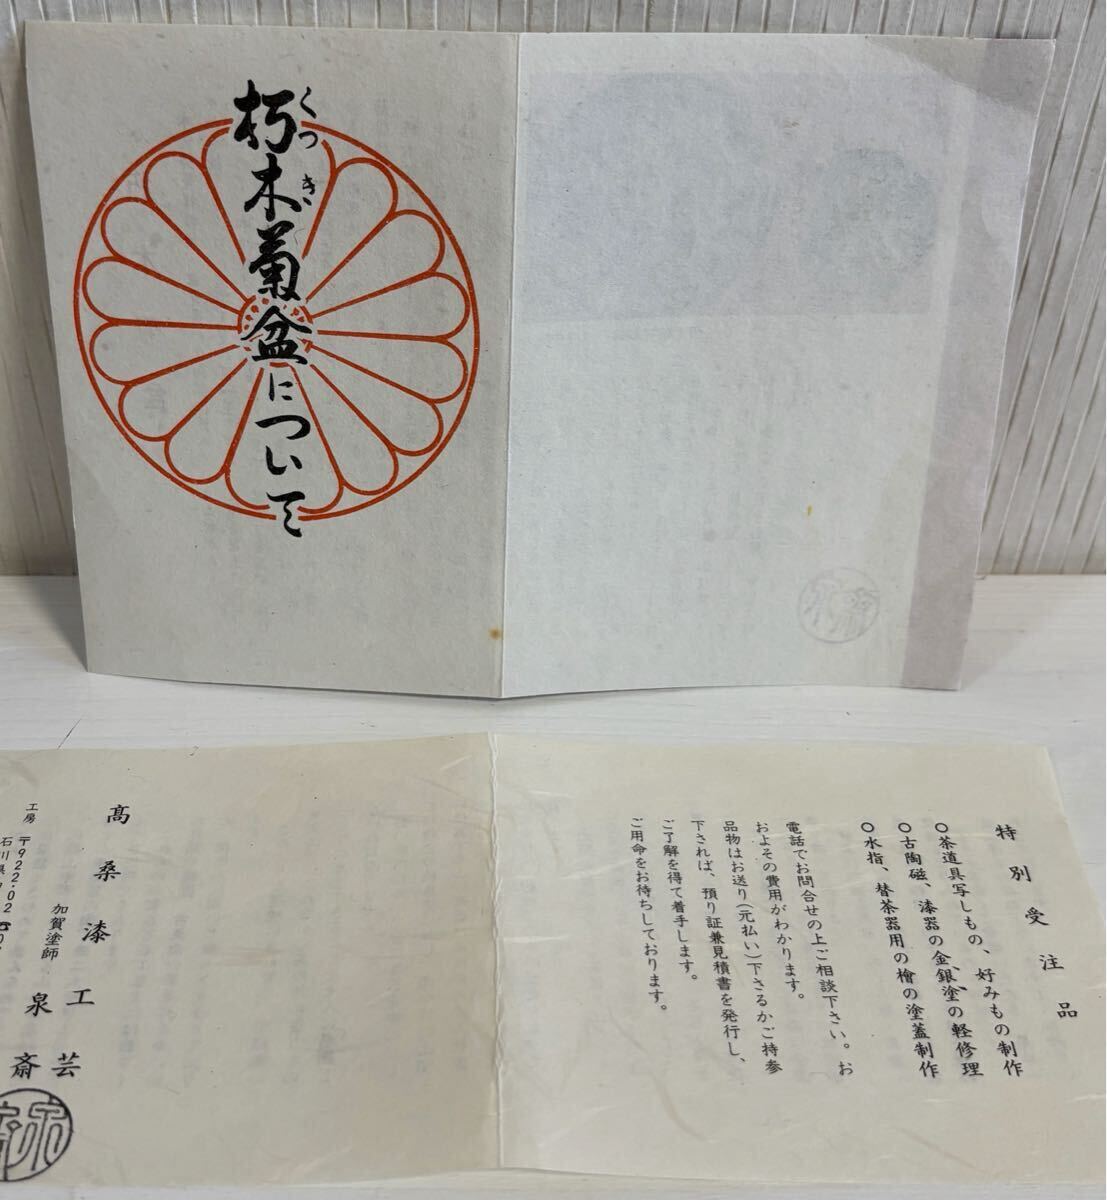 朽木菊盆について
くつきぎ
特別受注品
○茶道具写しもの、好みもの制作
○古陶磁、漆器の金、銀、塗の軽修理
○水指、替茶器用の檜の塗蓋制作
電話でお問合せの上ご相談下さい。お
およその費用がわかります。
品物はお送り(元払い)下さるかご持参
下されば、預り証兼見積書を発行し、
ご了解を得て着手します。
ご用命をお待ちしております。
髙桑漆工芸
加賀塗師 泉斎
工房 〒922-02
石川県